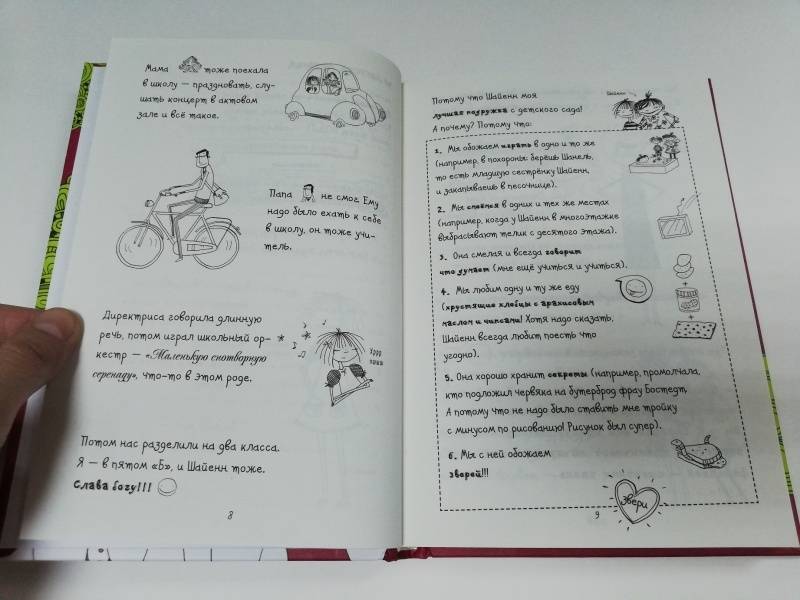 Мама тоже поехала
в школу — праздновать, слу-
шать концерт в актовом
зале и всё такое.
Папа не смог. Ему
надо было ехать к себе
в школу, он тоже учи-
тель.
Директриса говорила длинную
речь, потом играл школьный ор-
кестр — «Маленькую снотворную
серенаду», что-то в этом роде.
Хррр
Потом нас разделили на два класса.
Я — в пятом «Б», и Шайенн тоже.
Слава богу!!!
8
Потому что Шайенн моя
лучшая подружка с детского сада!
А почему? Потому что:
Шайенн
1. Мы обожаем играть в одно и то же
(например, в похороны: берёшь Шанель,
то есть младшую сестрёнку Шайенн,
и закапываешь в песочнице).
2. Мы смеёмся в одних и тех же местах
(например, когда у Шайенн в многоэтажке
выбрасывают телик с десятого этажа).
3. Она смелая и всегда говорит
что думает (мне ещё учиться и учиться).
4. Мы любим одну и ту же еду
(хрустящие хлебцы с арахисовым
маслом и чипсами! Хотя надо сказать,
Шайенн всегда любит поесть что
угодно).
5. Она хорошо хранит секреты (например, промолчала,
кто подложил червяка на бутерброд фрау Бостедт.
А потому что не надо было ставить мне тройку
с минусом по рисованию! Рисунок был супер).
6. Мы с ней обожаем
зверей!!!
звери
9